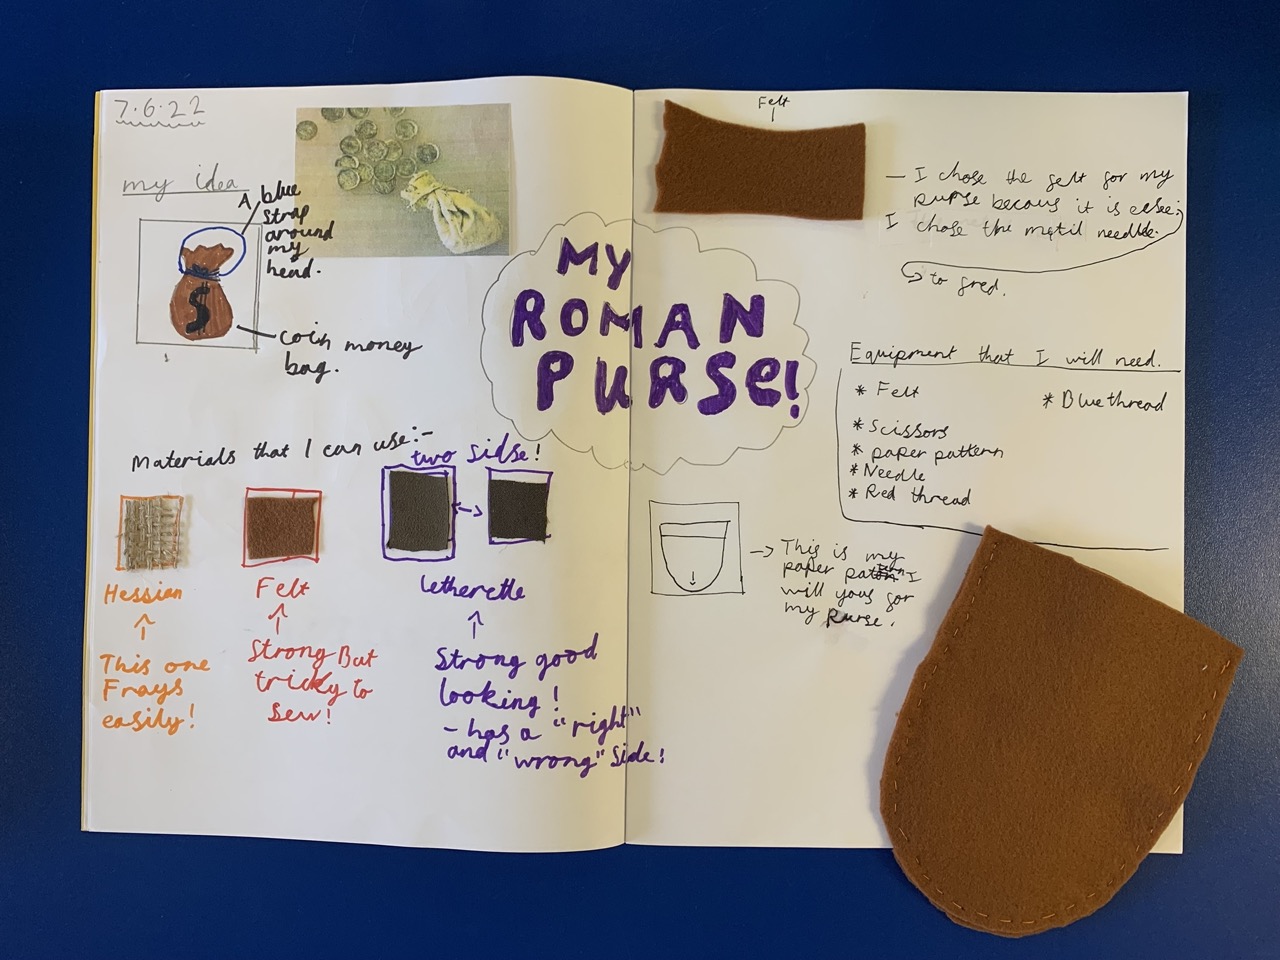 7.6.22
my idea
A blue
strap
around
my
head.
$
coin money
bag.
MY
ROMAN
PURSE!
Materials that I can use:-
two sidse!
Hessian
This one
Frays
easily!
Felt
Strong But
tricky to
sew!
letherette
Strong good
looking!
- has a "right"
and "wrong" side!
Felt
- I chose the felt for my
purse becaus it is
I chose the needle.
to
Equipment that I will need.
* Felt
* Blue thread
* Scissors
* paper pattern
* Needle
* Red thread
This is my
paper I
will yous for
my purse.